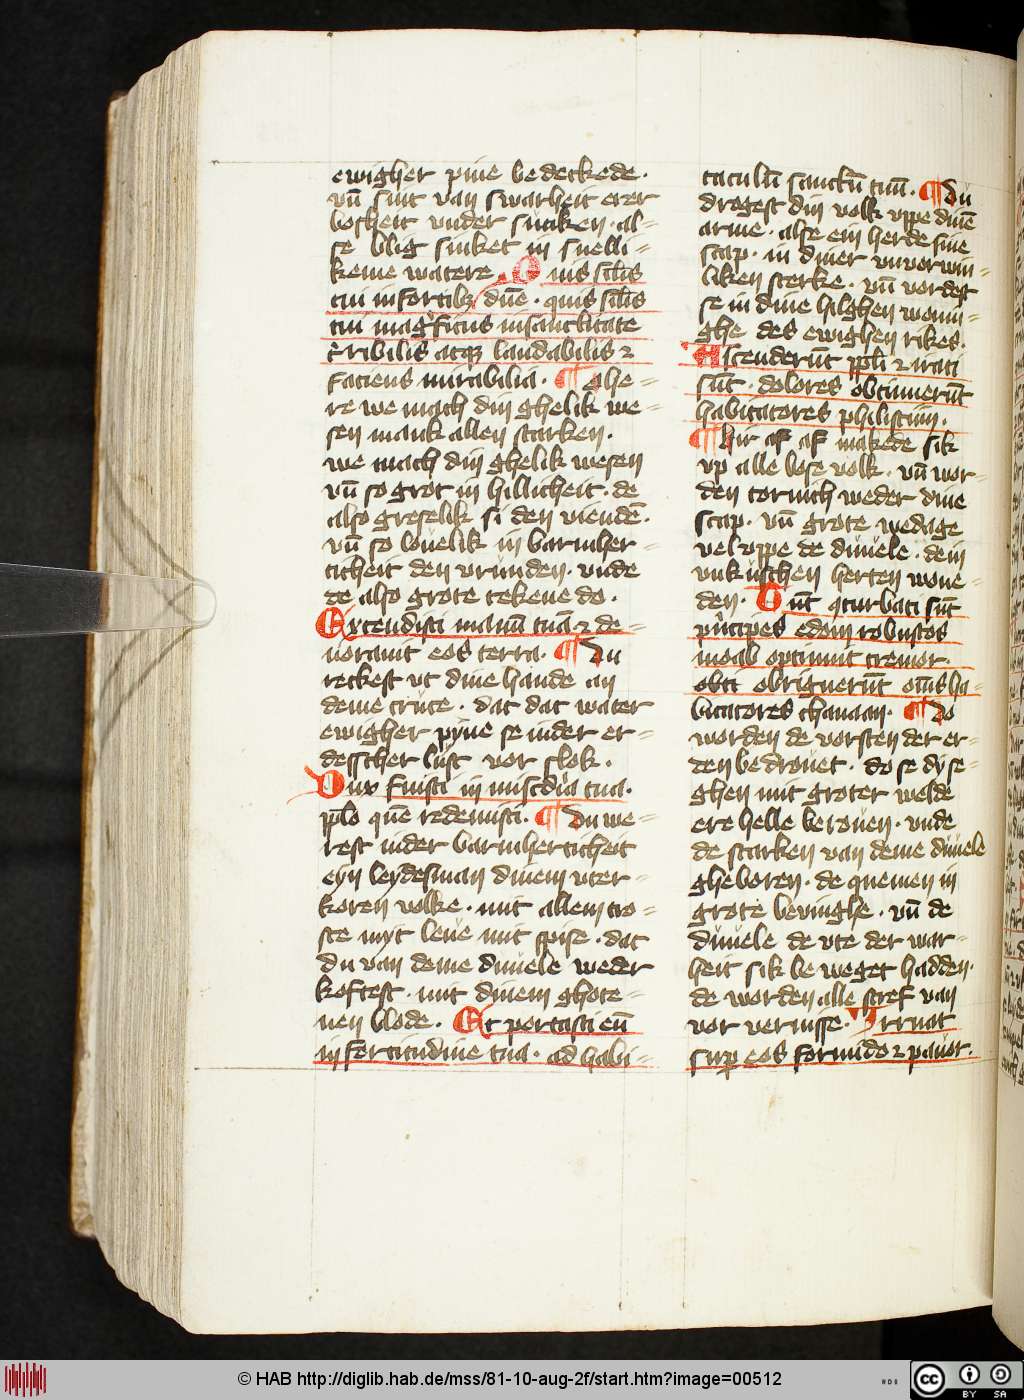 ewigher pine bedeckede.
vn̄ sint van swarheit erer
bosheit vnder suncken. al=
se blig sinket in snelli=
keme watere. Quis sīlis
tui in fortibꝫ dn̄e. quis sīlis
tui magͥficus in sanctitate
t̄ribilis atqꝫ laudabilis ⁊
faciens mirabilia. ¶ Ghe=
re we mach din ghelik we=
sen mank allen starken.
we mach din ghelik wesen
vn̄ so grot in hillicheit. de
also greselik si den viendē.
vn̄ so louelik in barmher=
ticheit den vrunden. vnde
de also grote tekene do.
Extendisti manū tuā ⁊ de=
uorauit eos terra. ¶ Du
reckest vt dine hande an
deme cruce. dat dat water
ewigher pyne se in der er=
desscher lust vor slok.
Dux fuisti in mīscdīa tua.
pplō quē redemisti. ¶ Du we=
rest in der barmherticheit
eyn leydesman dinem vter=
koren volke. mit allem tro=
ste myt leue mit spise. dat
du van deme duuele weder
koftest. mit dinem ghote=
nen blode. Et portasti eū
in fortitudine tua. ad habi=
taculū sanctū tuū. ¶ Du
drogest din volk vppe dinē
arme. alse ein herde sine
scap. in diner vnvorwin=
liken sterke. vn̄ vordest
se in dine hilghen wonin=
ghe des ewighen rikes.
Ascenderūt ppl̄i ⁊ irati
sūt. dolores obtinuerūt
habitatores philistiim.
¶ Hir af af makede sik
vp alle bose volk. vn̄ wor=
den tornich weder dine
scap. vn̄ grote wedage
vel vppe de duuele. dem
vnkuschen herten wone=
den. Tūt ꝯturbati sūt
pͥncipes edom robustos
moab optinuit tremor.
obti obriguerūt oīns ha=
bitatores chanaan. ¶ Do
worden de vorsten der er=
den bedrouet. do se dyse=
ghen mit groter welde
ere helle berouen. vnde
de starken van deme duuele
gheboren. de quemen in
grote bevinghe. vn̄ de
duuele de vte der war=
heit sik beweget hadden.
de worden alle stref van
vor vernisse. Irruat
suꝑ eos formido ⁊ pauor.
© HAB http://diglib.hab.de/mss/81-10-aug-2f/start.htm?image=00512